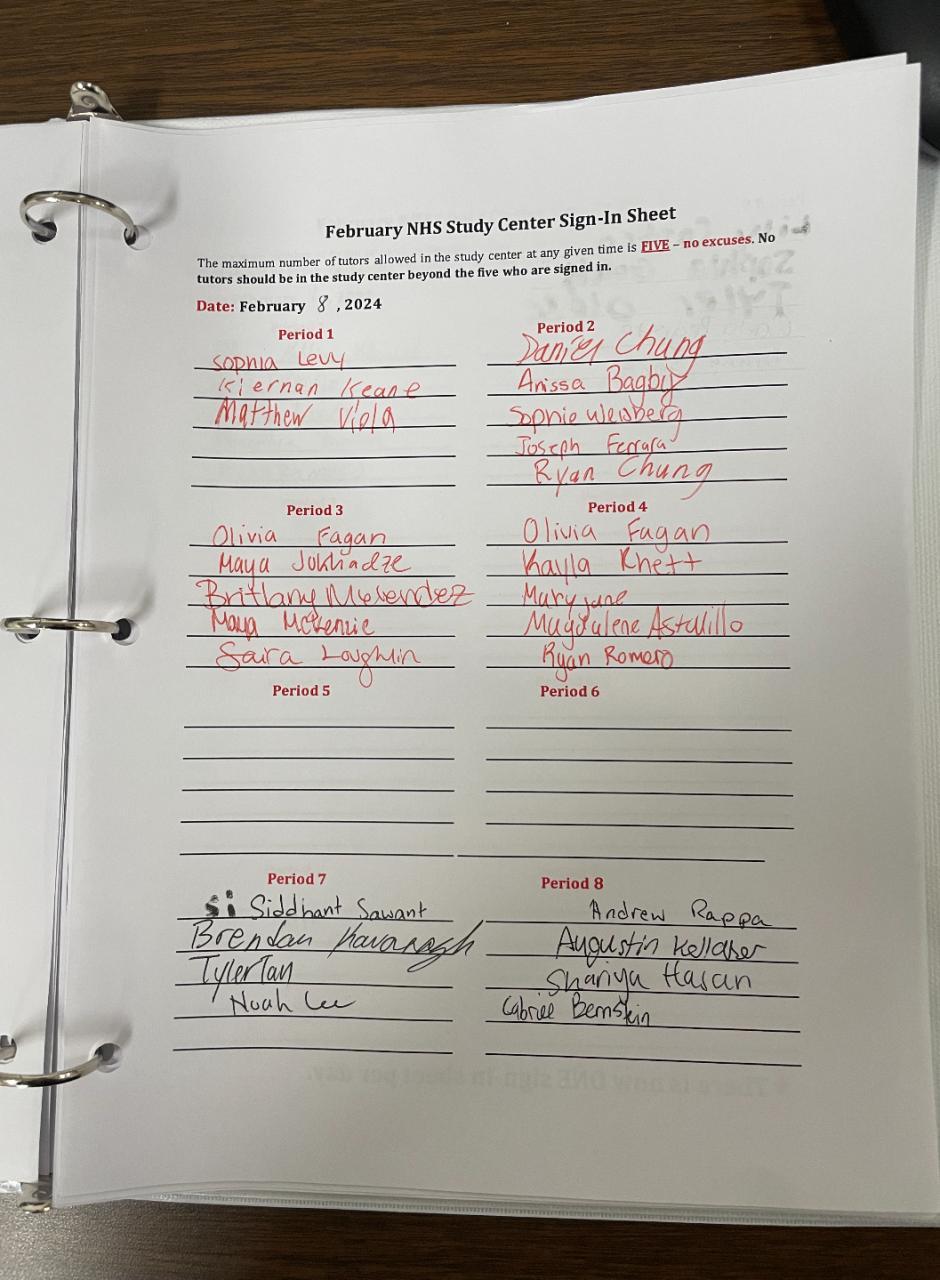 February NHS Study Center Sign-In Sheet
The maximum number of tutors allowed in the study center at any given time is FIVE – no excuses. No
tutors should be in the study center beyond the five who are signed in.
Date: February 8, 2024
Period 1
Sophia Levy
Kiernan Keane
Matthew Viola
Period 2
Daniel Chung
Anissa Bagby
Sophie Weisberg
Joseph Ferrara
Ryan Chung
Period 3
Olivia Fagan
Maya Jokhadze
Brittany Melendez
Maya McKenzie
Saira Loughlin
Period 4
Olivia Fagan
Kayla Khett
Mary jane
Magdalene Astudillo
Ryan Romero
Period 5
Period 6
Period 7
si Siddhant Sawant
Brendan Kavanagh
Tyler Tan
Noah Lee
Period 8
Andrew Rappa
Augustin Kellaher
Shariya Hasan
Gabriel Bernstein